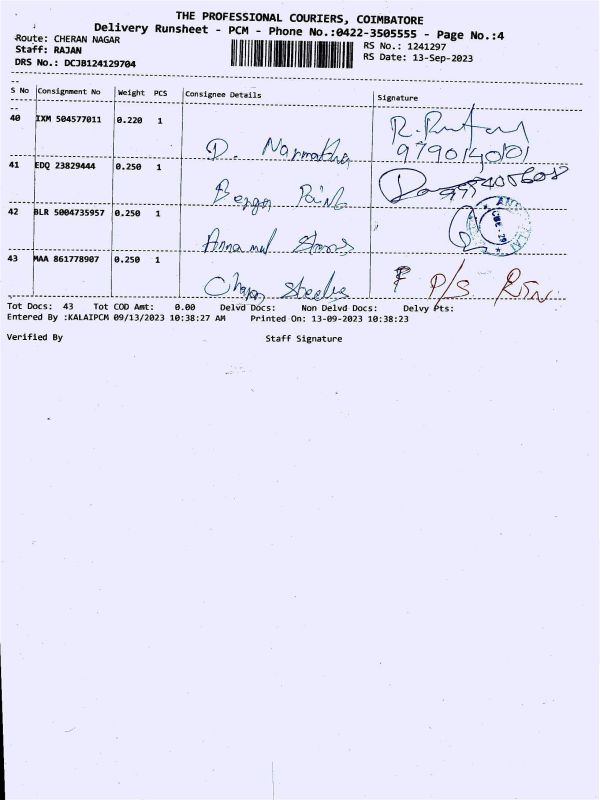 THE PROFESSIONAL COURIERS, COIMBATORE
Delivery Runsheet - PCM - Phone No.:0422-3505555 - Page No.:4
Route: CHERAN NAGAR
RS No.: 1241297
Staff: RAJAN
RS Date: 13-Sep-2023
DRS No.: DCJB124129704
S No Consignment No Weight PCS Consignee Details Signature
40 IXM 504577011 0.220 1
D. Narmatha
9790140101
41 EDQ 23829444 0.250 1
Berger Paint
42 BLR 5004735957 0.250 1
Annamul Stores
43 MAA 861778907 0.250 1
Steels
P/S RTN
Tot Docs: 43 Tot COD Amt: 0.00 Delvd Docs: Non Delvd Docs: Delvy Pts:
Entered By :KALAIPCM 09/13/2023 10:38:27 AM Printed On: 13-09-2023 10:38:23
Verified By Staff Signature